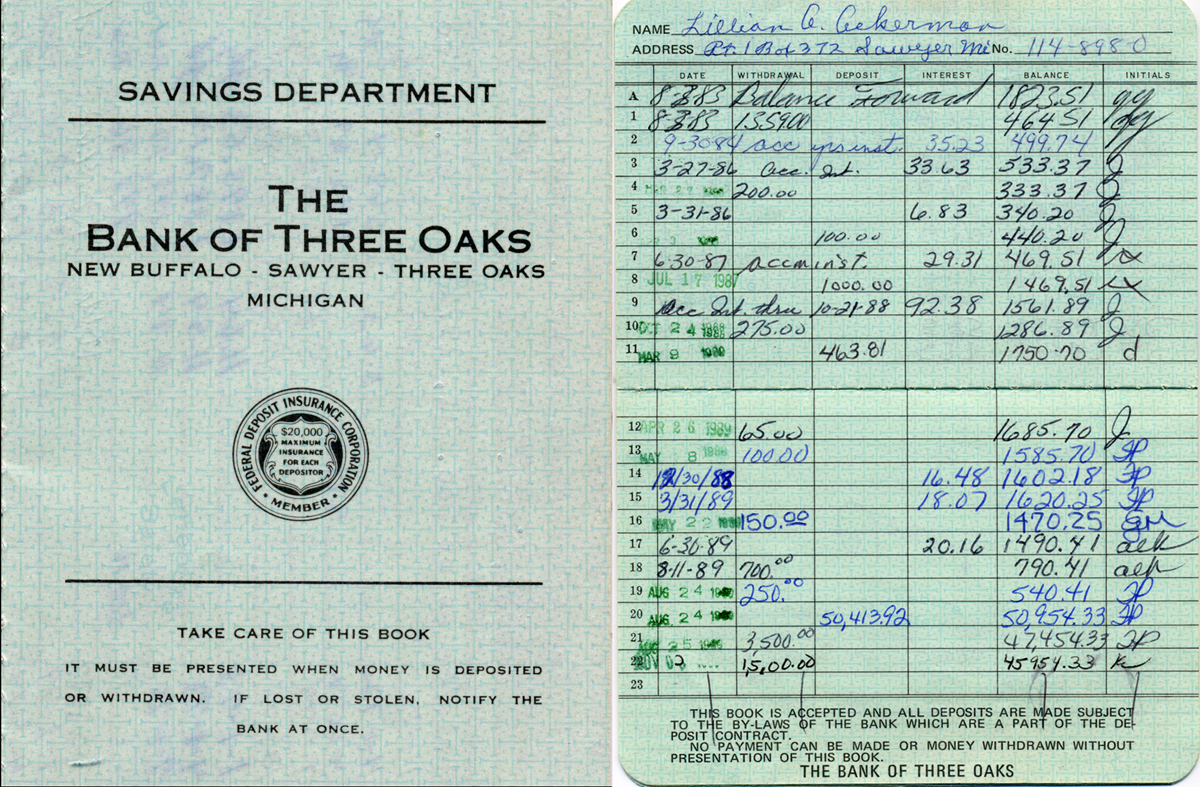 SAVINGS DEPARTMENT
THE
BANK OF THREE OAKS
NEW BUFFALO - SAWYER - THREE OAKS
MICHIGAN
FEDERAL DEPOSIT INSURANCE CORPORATION
$20,000
MAXIMUM
INSURANCE
FOR EACH
DEPOSITOR
• MEMBER •
TAKE CARE OF THIS BOOK
IT MUST BE PRESENTED WHEN MONEY IS DEPOSITED
OR WITHDRAWN. IF LOST OR STOLEN, NOTIFY THE
BANK AT ONCE.
NAME Lillian A. Ackerman
ADDRESS Rt. 1 Box 372 Sawyer Mi No. 114-898-0
DATE WITHDRAWAL DEPOSIT INTEREST BALANCE INITIALS
A 8-3-83 Balance Forward 1823.51
1 8-3-83 1359.00 464.51
2 9-30-84 acc 35.23 499.74
3 3-27-86 acc. Int. 33.63 533.37 J
4 200.00 333.37 J
5 3-31-86 6.83 340.20 J
6 100.00 440.20 J
7 6-30-87 29.31 469.51
8 JUL 17 1987 1000.00 1469.51
9 acc Int. thru 10-21-88 92.38 1561.89 J
10 OCT 24 1988 275.00 1286.89 J
11 MAR 8 463.81 1750.70 d
12 APR 26 1989 65.00 1685.70 J
13 MAY 8 100.00 1585.70 JP
14 12/30/88 16.48 1602.18 JP
15 3/31/89 18.07 1620.25 JP
16 MAY 22 150.00 1470.25
17 6-30-89 20.16 1490.41 aek
18 8-11-89 700.00 790.41 aek
19 AUG 24 250.00 540.41 JP
20 AUG 24 50,413.92 50,954.33 JP
21 AUG 25 3,500.00 47,454.33 JP
22 NOV 02 1,500.00 45954.33
23
THIS BOOK IS ACCEPTED AND ALL DEPOSITS ARE MADE SUBJECT
TO THE BY-LAWS OF THE BANK WHICH ARE A PART OF THE DE-
POSIT CONTRACT.
NO PAYMENT CAN BE MADE OR MONEY WITHDRAWN WITHOUT
PRESENTATION OF THIS BOOK.
THE BANK OF THREE OAKS